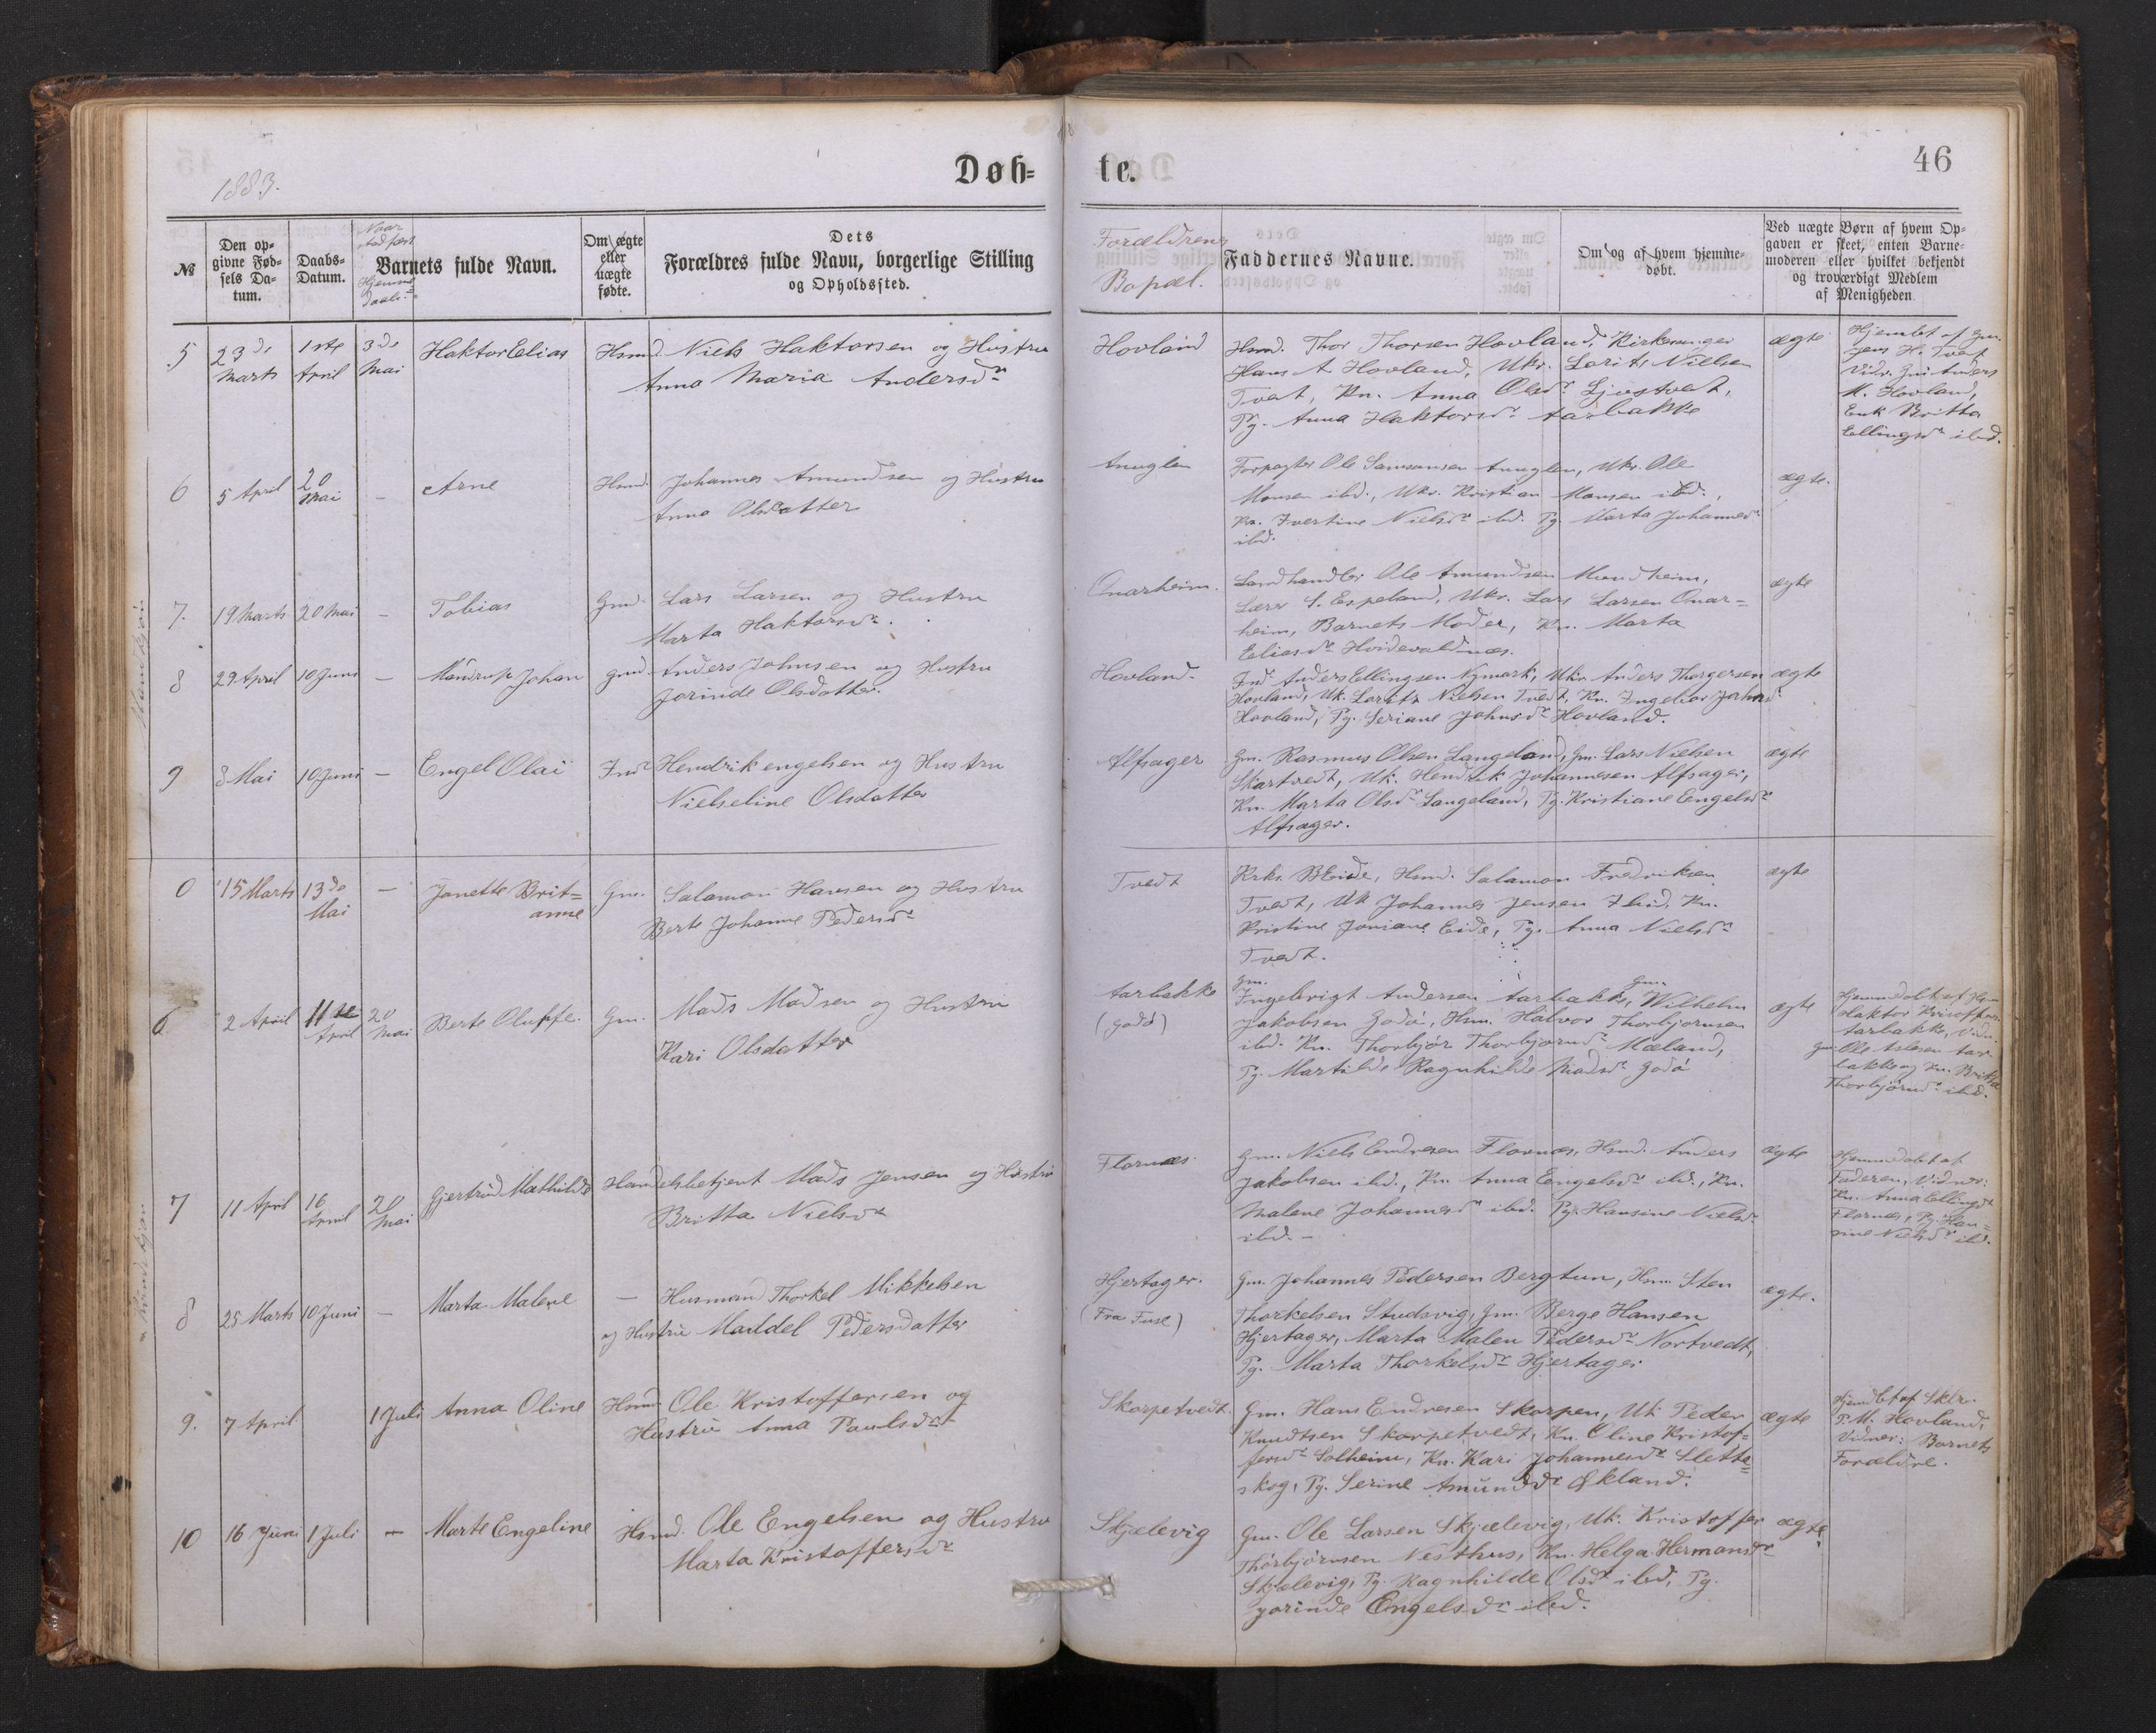 1883.
Døb=
te.
46
№
Den op-
givne Fød-
sels Da-
tum.
Daabs-
Datum.
Naar
stadfæst
Hjemme
Daab.
Barnets fulde Navn.
Om ægte
eller
uægte
fødte.
Dets
Forældres fulde Navn, borgerlige Stilling
og Opholdssted.
Forældrenes
Bopæl.
Faddernes Navne.
Om og af hvem hjemme-
døbt.
Ved uægte Børn af hvem Op-
gaven er skeet, enten Barne-
moderen eller hvilket bekjendt
og troværdigt Medlem
af Menigheden
Mandkjøn
5 23de Marts 1ste April 3de Mai Haktor Elias Hsmd. Niels Haktorsen og Hustru
Anna Maria Andersdr
Hovland
Hsmd. Thor Thorsen Hovland, Kirkesanger
Hans A Hovland, Uk. Lorits Nielsen
Tvet, Kn. Anna Olsdr Ljostvet,
Pg. Anna Haktorsdr Aarbakke
ægte
Hjemdbt af Gm.
Jens H. Tvet
Vidn. Gm Anders
M. Hovland,
Enk Britta
Ellingsdr ibd.
6 5 April 20 Mai – Arne Hsmd. Johannes Amundsen og Hustru
Anna Olsdatter
Anuglen
Forpagter Ole Samsonsen Anuglen, Uk. Ole
Monsen ibd., Uk. Kristian Monsen ibd.,
Kn. Ivertine Nielsdr ibd. Pg. Marta Johannesdr
ibd.
ægte.
7. 19 Marts 20 Mai – Tobias Gmd. Lars Larsen og Hustru
Marta Haktorsdr.
Onarheim.
Landhandler Ole Amundsen Mundheim,
Lærer S. Espeland, Uk. Lars Larsen Onar=
heim, Barnets Moder, Kn. Marta
Eliasdr Hvidevoldnæs.
ægte
8 29 April 10 Juni – Mandrup Johan Gmd. Anders Johnsen og Hustru
Jorinde Olsdatter.
Hovland.
Ind. Anders Ellingsen Nymark, Uk. Anders Thorgersen
Hovland, Uk. Lorits Nielsen Tvet, Kn. Ingebor Johnsdr
Hovland, Pg. Seriane Johnsdr Hovland.
ægte
9 8 Mai 10 Juni – Engel Olai Indr Hendrik engelsen og Hustru
Nielseline Olsdatter
Alfsager
Gm. Rasmus Olsen Langeland, Gm. Lars Nielsen
Skartvedt, Uk. Hendrik Johannesen Alfsager,
Kn. Marta Olsdr Langeland, Pg. Kristiane Engelsdr
Alfsager.
ægte
Kvindekjøn
15 Marts 13de Mai – Janette Brit=
anne
Gm. Salamon Hansen og Hustru
Berte Johanne Pedersdr
Tvedt
Krks. B Eide, Hsmd. Salamon Fredriksen
Tvedt, Uk Johannes Jensen Ibid. Kn.
Kristine Joniane Eide, Pg. Anna Nielsdr
Tvedt.
ægte
6 2 April 11te April 20 Mai Berte Oluffe. Gm. Mads Madsen og Hustru
Kari Olsdatter
Aarbakke
(Godø)
Gm.
Ingebrigt Andersen Aarbakke, Gm. Wilhelm
Jakobsen Godø, Hsm. Halvor Thorbjørnsen
ibd. Kn. Thorbjør Thorbjørnsdr Mæland,
Pg. Martilde Ragnhilde Madsdr Godø
ægte
Hjemmedøbt af
Haktor Kristoffersen
Aarbakke, Vidn.
Gm. Ole Aslesen Aar
bakke og Kn. Britta
Thorbjørnsdr ibd.
7 11 April 16 April 20 Mai Gjertrud Mathilde Handelsbetjent Mads Jensen og Hustru
Britta Nielsdr
Flornæs
Gm. Niels Endresen Flornæs, Hsmd. Anders
Jakobsen ibd., Kn. Anna Engelsdr ibd., Kn.
Malene Johannesdr ibd. Pg. Hansine Nielsdr
ibd. –
ægte
Hjemmedøbt af
Faderen, Vidner:
Kn. Anna Ellingsdr
Flornæs, Pg. Han=
sine Nielsdr ibd.
8 25 Marts 10 Juni – Marta Malene – Husmand Thorkel Mikkelsen
og Hustru Maddel Pedersdatter
Hjertager.
(Fra Fuse)
Gm. Johannes Pedersen Bergtun, Hsm. Sten
Thorkelsen Studsvig, Gm. Berge Hansen
Hjertager, Marta Malen Pedersdr Nortvedt,
Pg. Marta Thorkelsdr Hjertager
ægte.
9. 7 April 1 Juli Anna Oline Hsmd Ole Kristoffersen og
Hustru Anna Paulsdtr
Skorpetvedt.
Gm. Hans Endresen Skorpen, Uk Peder
Knudtsen Skorpetvedt, Kn. Oline Kristof=
fersdr Solheim, Kn. Kari Johannesdr Slette=
skog, Pg. Serine Amundsdr Økland.
ægte
Hjemdbt af Sklr.
P. M. Hovland,
Vidner: Barnets
Forældre.
10 16 Juni 1 Juli – Marte Engeline Hsmd. Ole Engelsen og Hustru
Marta Kristoffersdr
Skjælevig
Gm. Ole Larsen Skjælevig, Uk. Kristoffer
Thorbjørnsen Nesthus, Kn. Helga Hermansdr
Skjælevig, Pg. Ragnhilde Olsdr ibd, Pg.
Jorinde Engelsdr ibd.
ægte